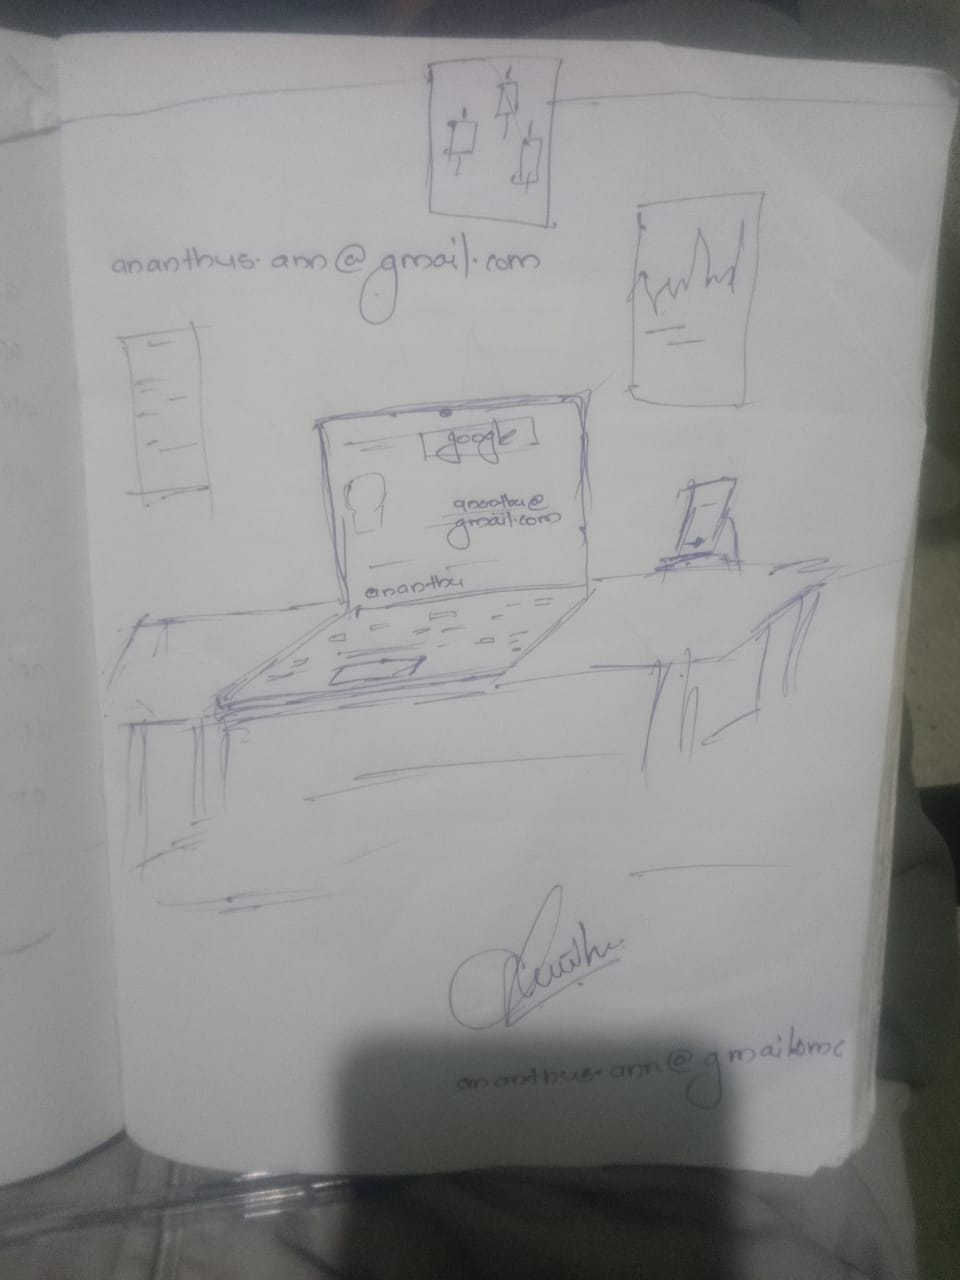 ananthus.ann@gmail.com
google
ananthu@
gmail.com
ananthu
ananthus.ann@gmailomc